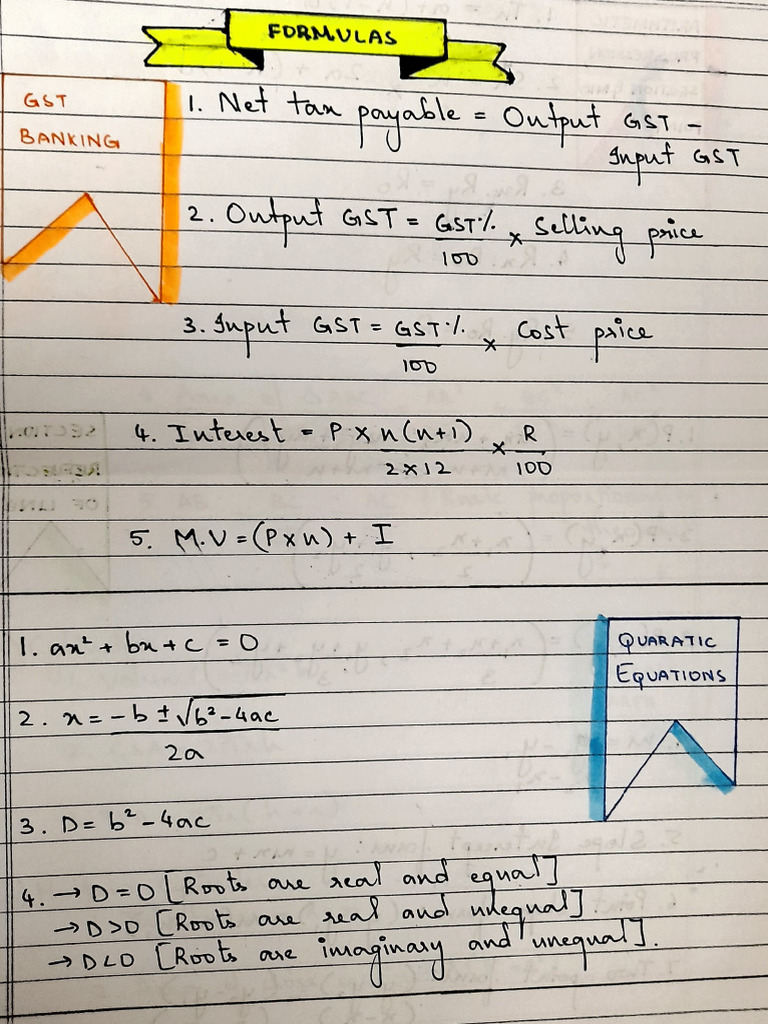 FORMULAS
GST
BANKING
1. Net tax payable = Output GST -
Input GST
2. Output GST = GST% / 100 × Selling price
3. Input GST = GST% / 100 × Cost price
4. Interest = P × n(n+1) / 2×12 × R / 100
5. M.V = (P×n) + I
QUARATIC
EQUATIONS
1. ax² + bx + c = 0
2. x = -b ± √b²-4ac / 2a
3. D = b² - 4ac
4. → D = 0 [Roots are real and equal]
→ D>0 [Roots are real and unequal].
→ D<0 [Roots are imaginary and unequal].